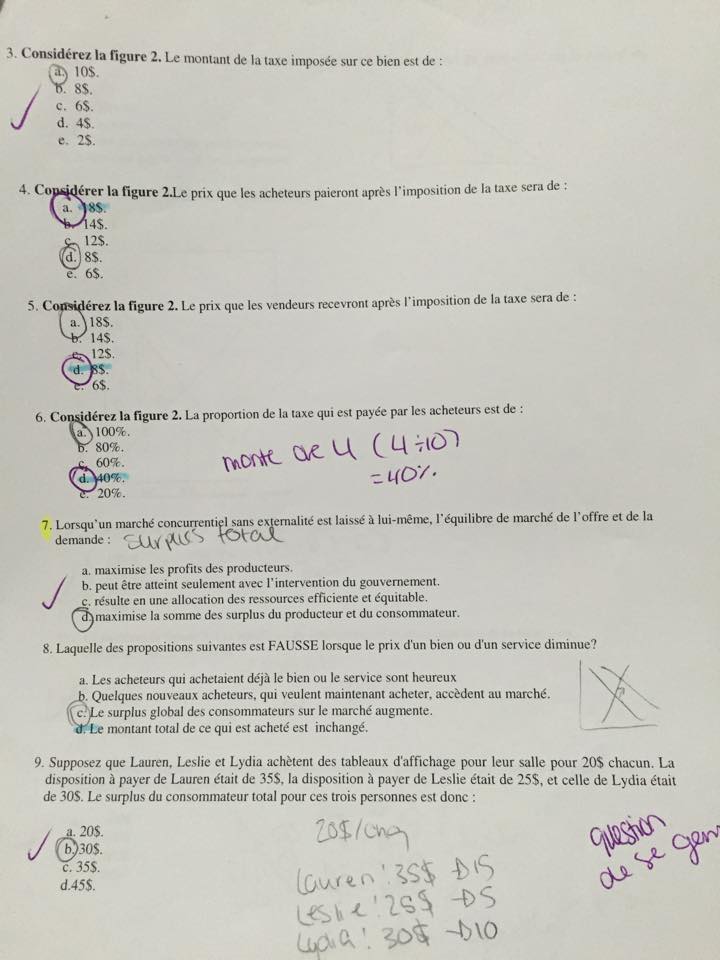 3. Considérez la figure 2. Le montant de la taxe imposée sur ce bien est de :
a. 10$.
b. 8$.
c. 6$.
d. 4$.
e. 2$.
4. Considérer la figure 2.Le prix que les acheteurs paieront après l'imposition de la taxe sera de :
a. 18$.
b. 14$.
c. 12$.
d. 8$.
e. 6$.
5. Considérez la figure 2. Le prix que les vendeurs recevront après l'imposition de la taxe sera de :
a. 18$.
b. 14$.
c. 12$.
d. 8$.
e. 6$.
6. Considérez la figure 2. La proportion de la taxe qui est payée par les acheteurs est de :
a. 100%.
b. 80%.
c. 60%.
d. 40%.
e. 20%.
monte de 4 (4÷10)
=40%
7. Lorsqu'un marché concurrentiel sans externalité est laissé à lui-même, l'équilibre de marché de l'offre et de la
demande : surplus total
a. maximise les profits des producteurs.
b. peut être atteint seulement avec l'intervention du gouvernement.
c. résulte en une allocation des ressources efficiente et équitable.
d. maximise la somme des surplus du producteur et du consommateur.
8. Laquelle des propositions suivantes est FAUSSE lorsque le prix d'un bien ou d'un service diminue?
a. Les acheteurs qui achetaient déjà le bien ou le service sont heureux
b. Quelques nouveaux acheteurs, qui veulent maintenant acheter, accèdent au marché.
c. Le surplus global des consommateurs sur le marché augmente.
d. Le montant total de ce qui est acheté est inchangé.
9. Supposez que Lauren, Leslie et Lydia achètent des tableaux d'affichage pour leur salle pour 20$ chacun. La
disposition à payer de Lauren était de 35$, la disposition à payer de Leslie était de 25$, et celle de Lydia était
de 30$. Le surplus du consommateur total pour ces trois personnes est donc :
a. 20$.
b. 30$.
c. 35$.
d.45$.
20$/chaq
Lauren : 35$ → 15
Leslie : 25$ → 5
Lydia : 30$ → 10
question
de se genr